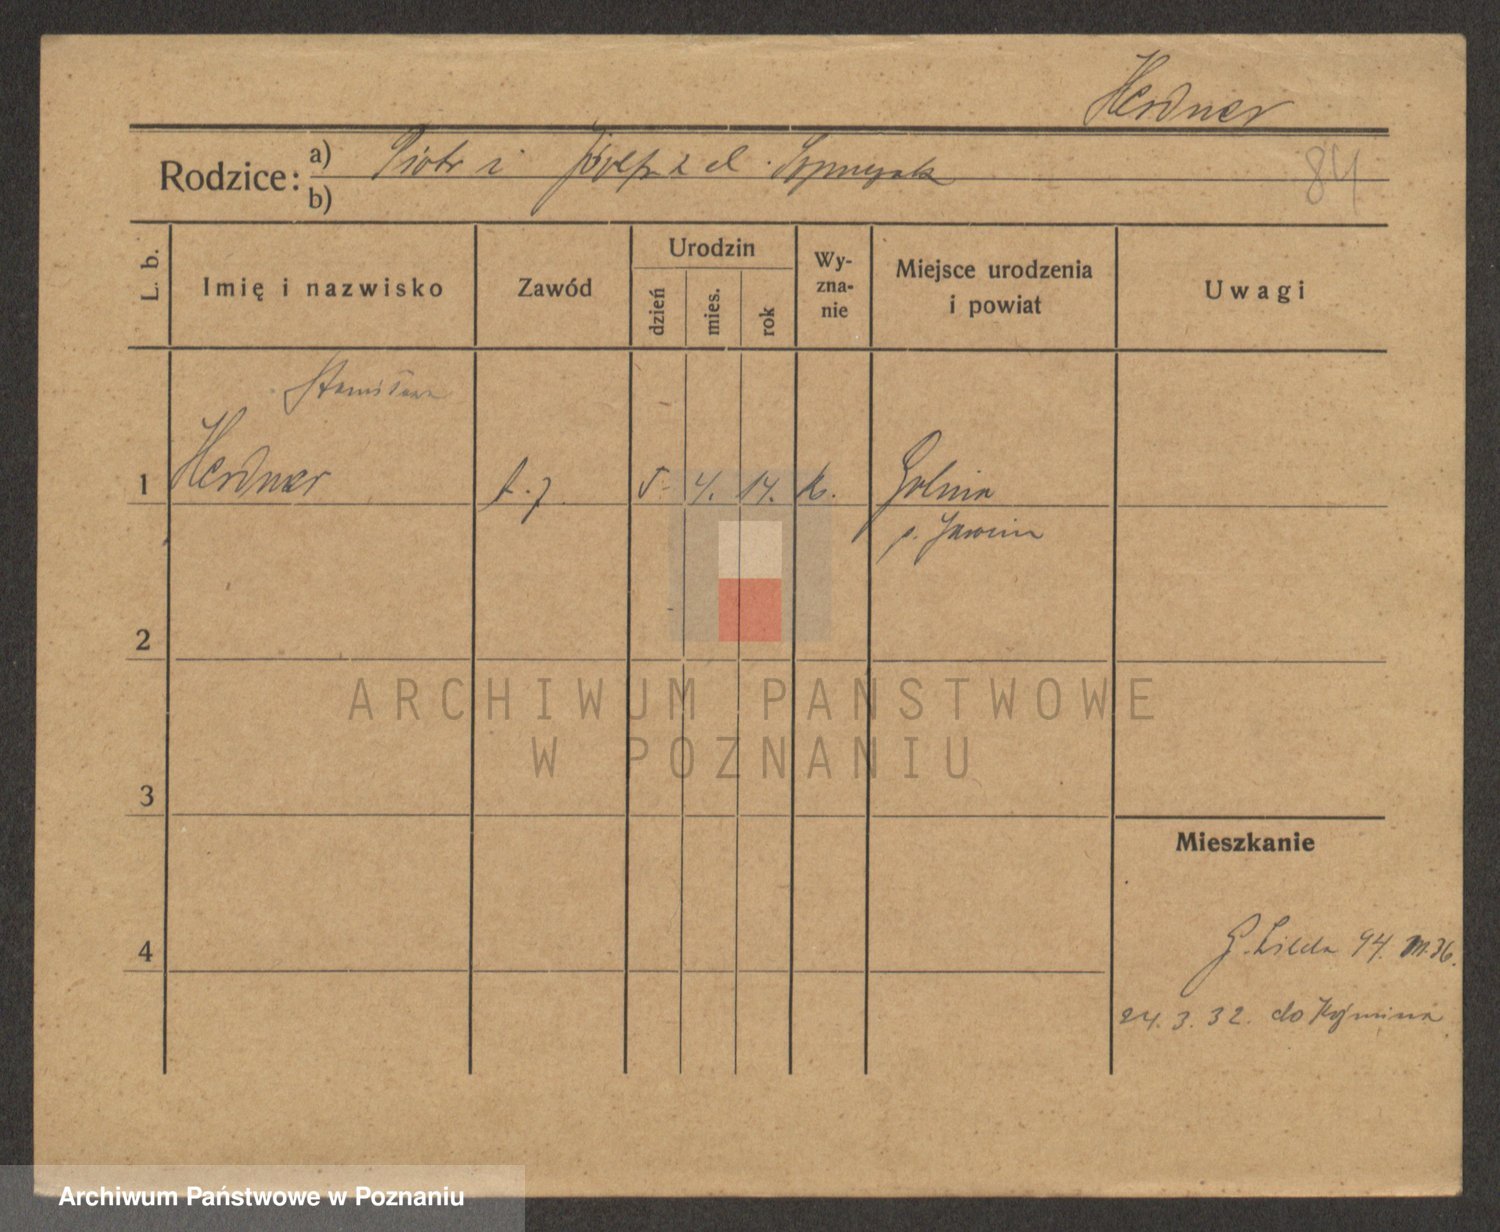 Herdner
Rodzice: a) Piotr i Józefa z d. Szymczak
b)
84
L. b.
Imię i nazwisko
Zawód
Urodzin
dzień
mies.
rok
Wy-
zna-
nie
Miejsce urodzenia
i powiat
Uwagi
Stanisława
1 Herdner 5. 4. 14. k. Golina
p. Jarocin
2
3
4
ARCHIWUM PAŃSTWOWE
W POZNANIU
Mieszkanie
G. Wilda 94. m. 36.
24. 3. 32. do
Archiwum Państwowe w Poznaniu